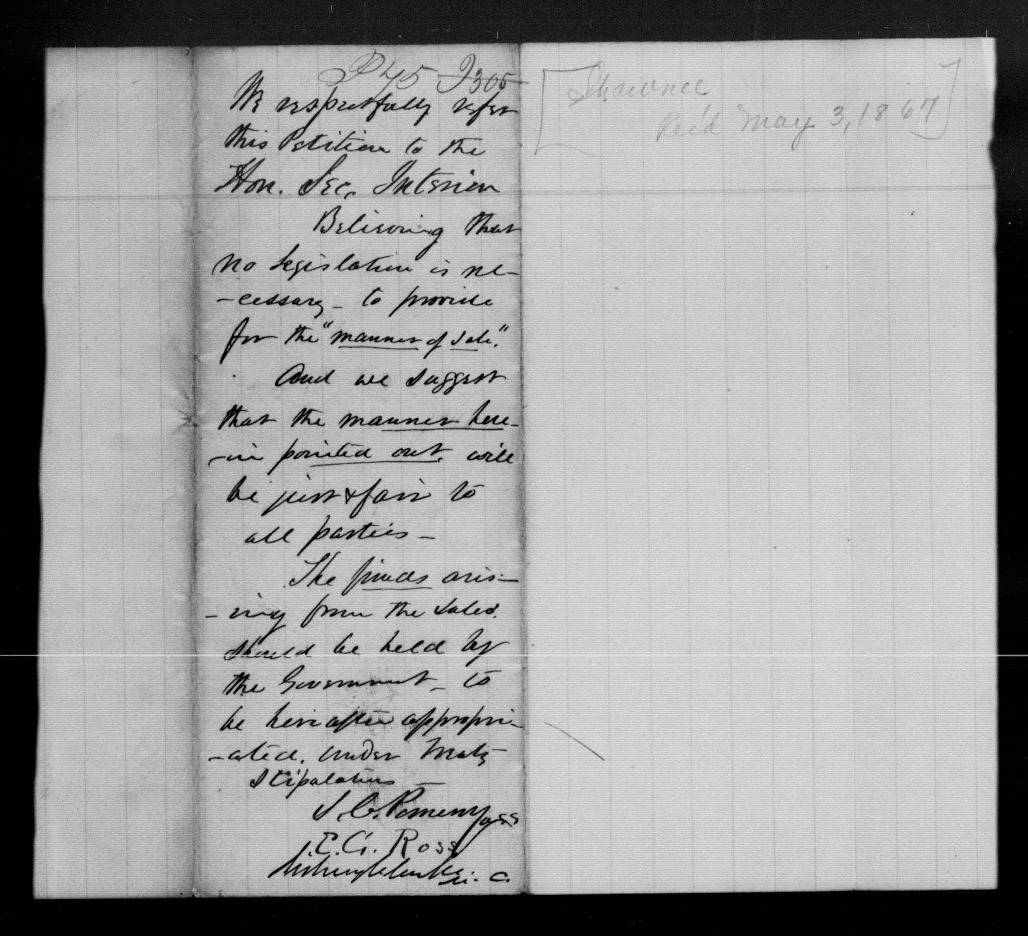 P 45 I 305
We respectfully refer
this Petition to the
Hon. Sec, Interior
Believing that
no legislation is ne-
-cessary - to provide
for the "manner of sale".
And we suggest
that the manner here-
-in pointed out, will
be just & fair to
all parties -
The funds aris-
-ing from the sales,
should be held by
the Government - to
be hereafter appropri-
-ated, under Treaty
Stipulations -
S. C. Pomeroy USS
E. G. Ross
Sidney Clarke M. C.
[Shawnee
Rec'd May 3, 1867]